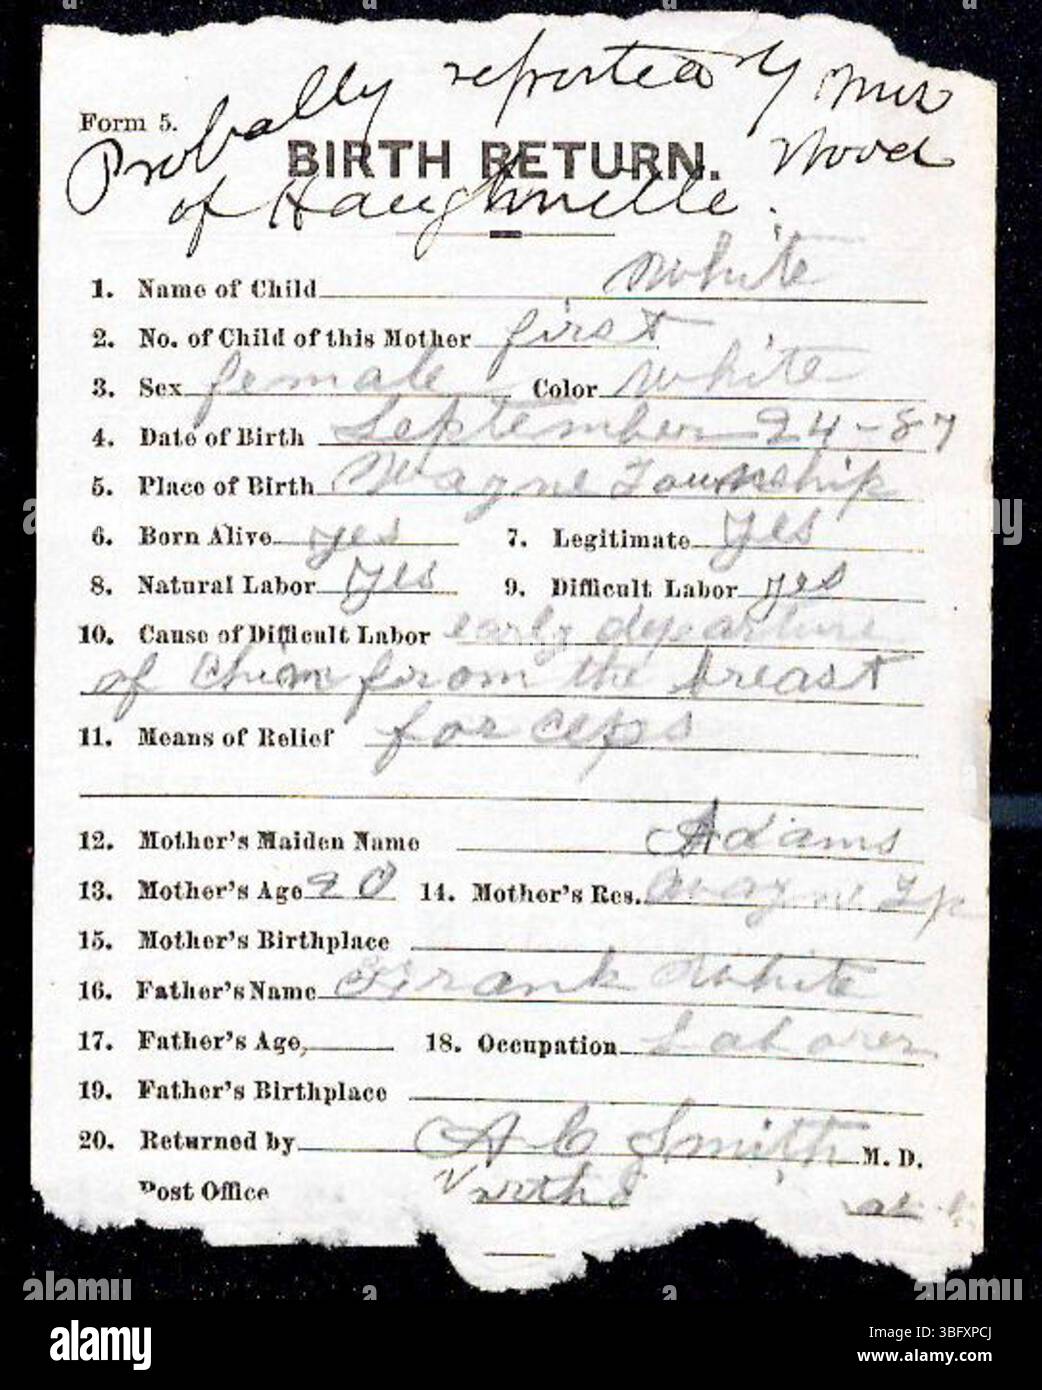 Probally reported by Mrs
Wood
of Haughville.
Form 5.
BIRTH RETURN.
1. Name of Child White
2. No. of Child of this Mother first
3. Sex female Color White
4. Date of Birth September 24-87
5. Place of Birth Wayne Township
6. Born Alive yes 7. Legitimate yes
8. Natural Labor yes 9. Difficult Labor yes
10. Cause of Difficult Labor early departure
of Chin from the breast
11. Means of Relief forceps
12. Mother's Maiden Name Adams
13. Mother's Age 20 14. Mother's Res. Wayne Tp
15. Mother's Birthplace
16. Father's Name Frank White
17. Father's Age, 18. Occupation Laborer
19. Father's Birthplace
20. Returned by A C Smith M. D.
Post Office
alamy
Image ID: 3BFXPCJ
www.alamy.com